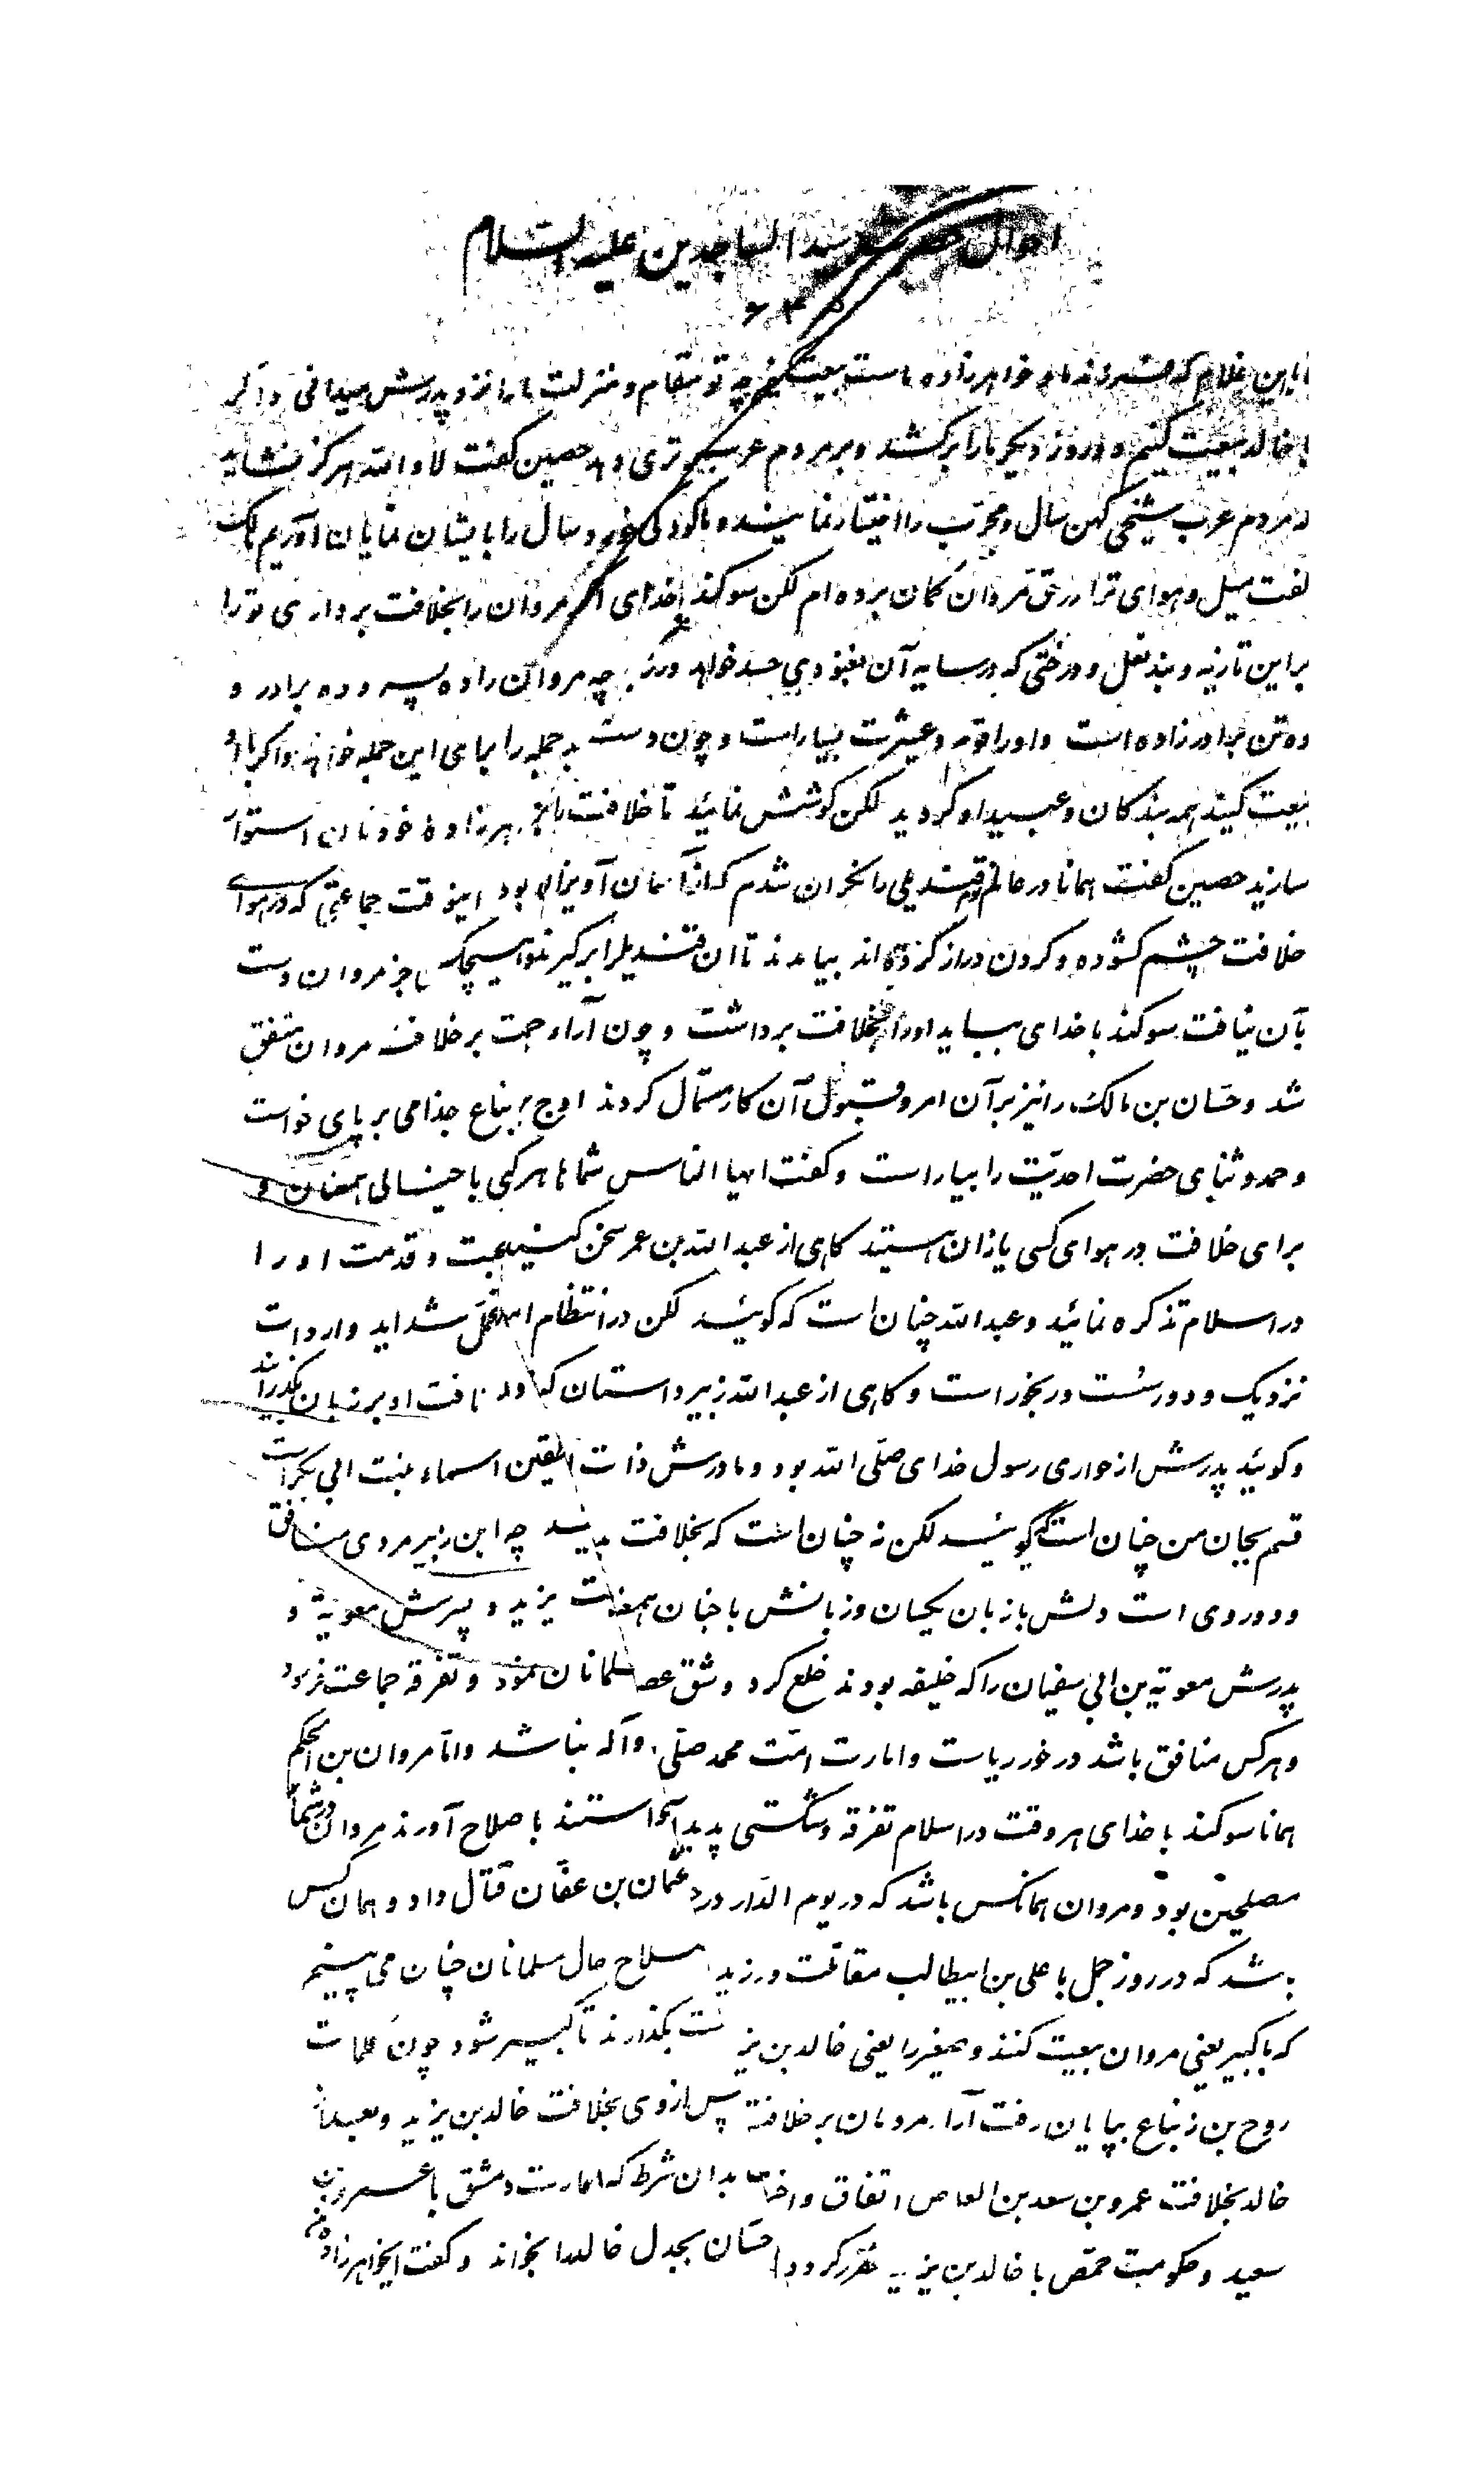 احوال حضرت سید الساجدین علیه السلام
با این غلام که فرزند ما و خواهرزاده ماست بیعت کنیم چه تو مقام و منزلت ما را نزد پدرش میدانی و اگر
با خالد بیعت کنیم در روز دیگر ما را برکشد و بر مردم عرب برتری دهد حصین گفت لا والله هرگز نشاید
که مردم عرب شیخی کهن سال و مجرب را اختیار نمایند و ما کودکی خورد سال را بایشان نمایان آوریم مالک
گفت میل و هوای ترا در حق مروان گمان برده ام لکن سوکند با خدای اگر مروان را بخلافت برداری تو را
بر این تازیانه و بند نعل و درختی که در سایه آن بغنودی حسد خواهد ورزید چه مروان را ده پسر و ده برادر و
ده تن برادرزاده است و او را قوم و عشیرت بسیار است و چون دست بیعت
بیعت کنید همه بندکان و عبید او گردید لکن کوشش نمائید تا خلافت با خواهرزاده خودتان استوار
سازید حصین گفت همانا در عالم قندیلی را نکران شدم که از آسمان آویزان بود اینوقت جماعتی که در هوای
خلافت چشم کشوده و کردن دراز کرده اند بیامدند تا ان قندیل را برگیرند و هیچیک جز مروان دست
بآن نیافت سوکند با خدای بباید او را بخلافت برداشت و چون آراء جمعیت بر خلافت مروان متفق
شد و حسان بن مالک را نیز بر آن امر و قبول آن کار مستمال کردند روح بن زنباع جذامی بر پای خواست
و حمد و ثنای حضرت احدیت را بیاراست و گفت ایها الناس شماها هر کسی با خیالی همعنان و
برای خلافت در هوای کسی یازان هستید کاهی از عبد الله بن عمر سخن کنید صحبت و قدمت او را
در اسلام تذکره نمائید و عبد الله چنان است که گوئید لکن در انتظام امور و تحمل شداید و واردات
نزدیک و دور سست و رنجور است و کاهی از عبد الله زبیر داستان کنید و خلافت او بر زبان بگذرانید
و گوئید پدرش از حواری رسول خدای صلی الله بود و مادرش ذات النطاقین اسماء بنت ابی بکر است
قسم بجان من چنان است که گوئید لکن نه چنان است که بخلافت چه ابن زبیر مردی منافق
و دوروی است دلش با زبان یکسان و زبانش با جنان همعنان نیست یزید و پسرش معویة و
پدرش معویة بن ابی سفیان را که خلیفه بودند خلع کرد و شق عصای مسلمانان نمود و تفرقه جماعت فرمود
و هر کس منافق باشد در خور ریاست و امارت امت محمد صلی و آله نباشد و اما مروان بن الحکم
همانا سوکند با خدای هر وقت در اسلام تفرقه و شکستی پدید خواستند با صلاح آورند مروان در شمار
مصلحین بود و مروان همانکس باشد که در یوم الدار در عثمان بن عفان قتال داد و همان کس
باشد که در روز جمل با علی بن ابیطالب مقاتلت ورزید صلاح حال مسلمانان چنان می بینیم
که با کبیر یعنی مروان بیعت کنند و صغیر را یعنی خالد بن یزید بگذارند تا کبیر شود چون کلمات
روح بن زنباع بپایان رفت آراء مردمان بر خلافت پس از وی بخلافت خالد بن یزید و بعد از
خالد بخلافت عمرو بن سعد بن العاص اتفاق و بدان شرط که امارت دمشق با عمرو بن
سعید و حکومت حمص با خالد بن یزید مقرر کردد حسان بجدل خالد را بخواند و گفت ایخواهرزاده من